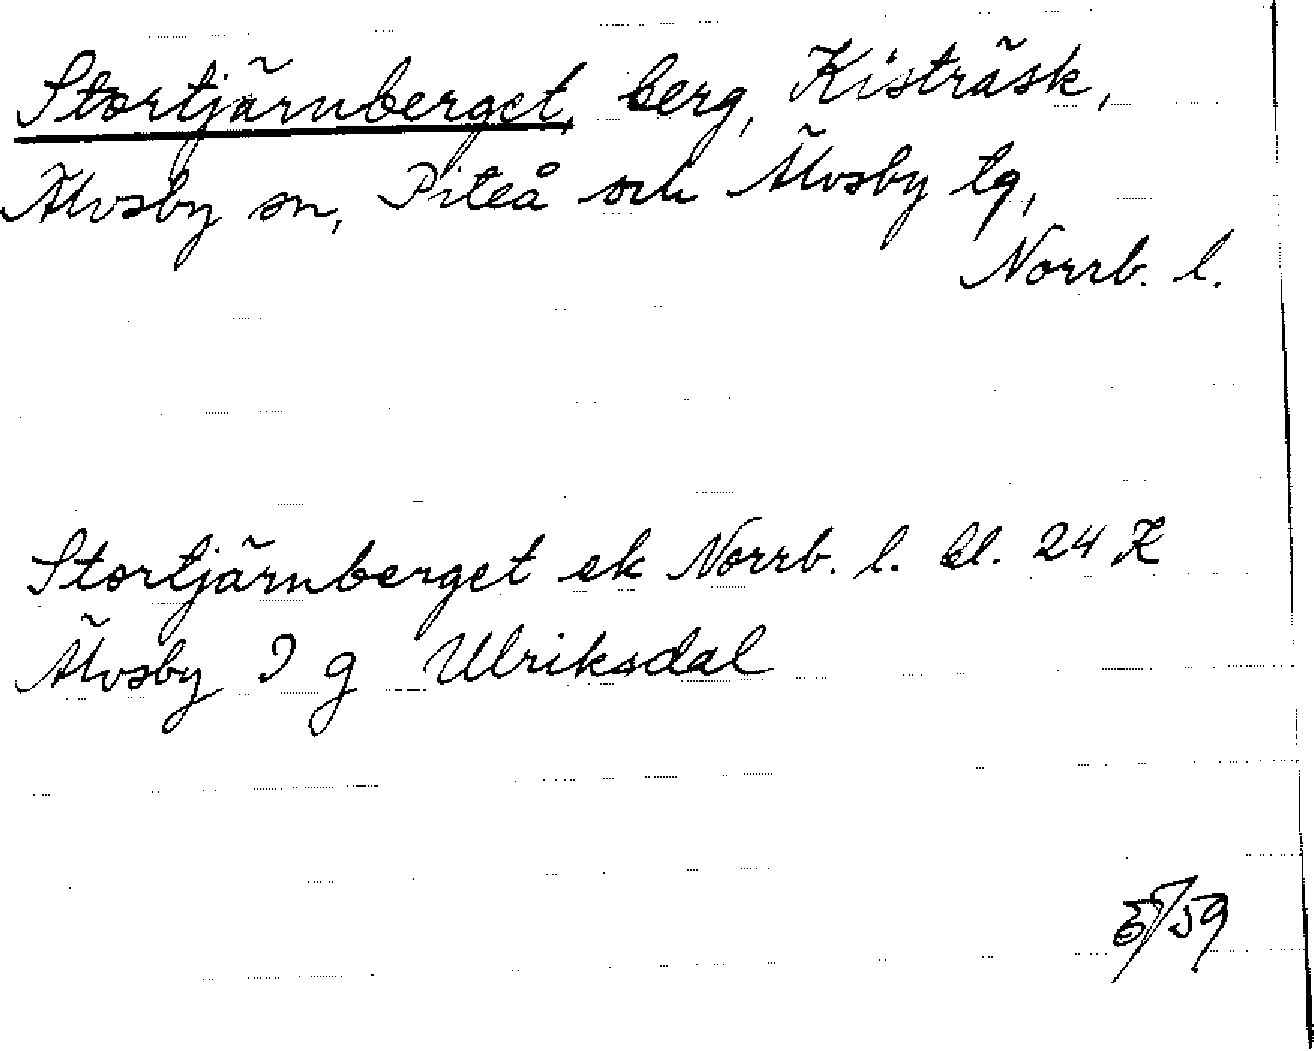 Stortjärnberget, berg, Kisträsk,
Älvsby sn, Piteå och Älvsby tg,
Norrb. l.
Stortjärnberget ek Norrb. l. bl. 24 K
Älvsby I g Ulriksdal
59